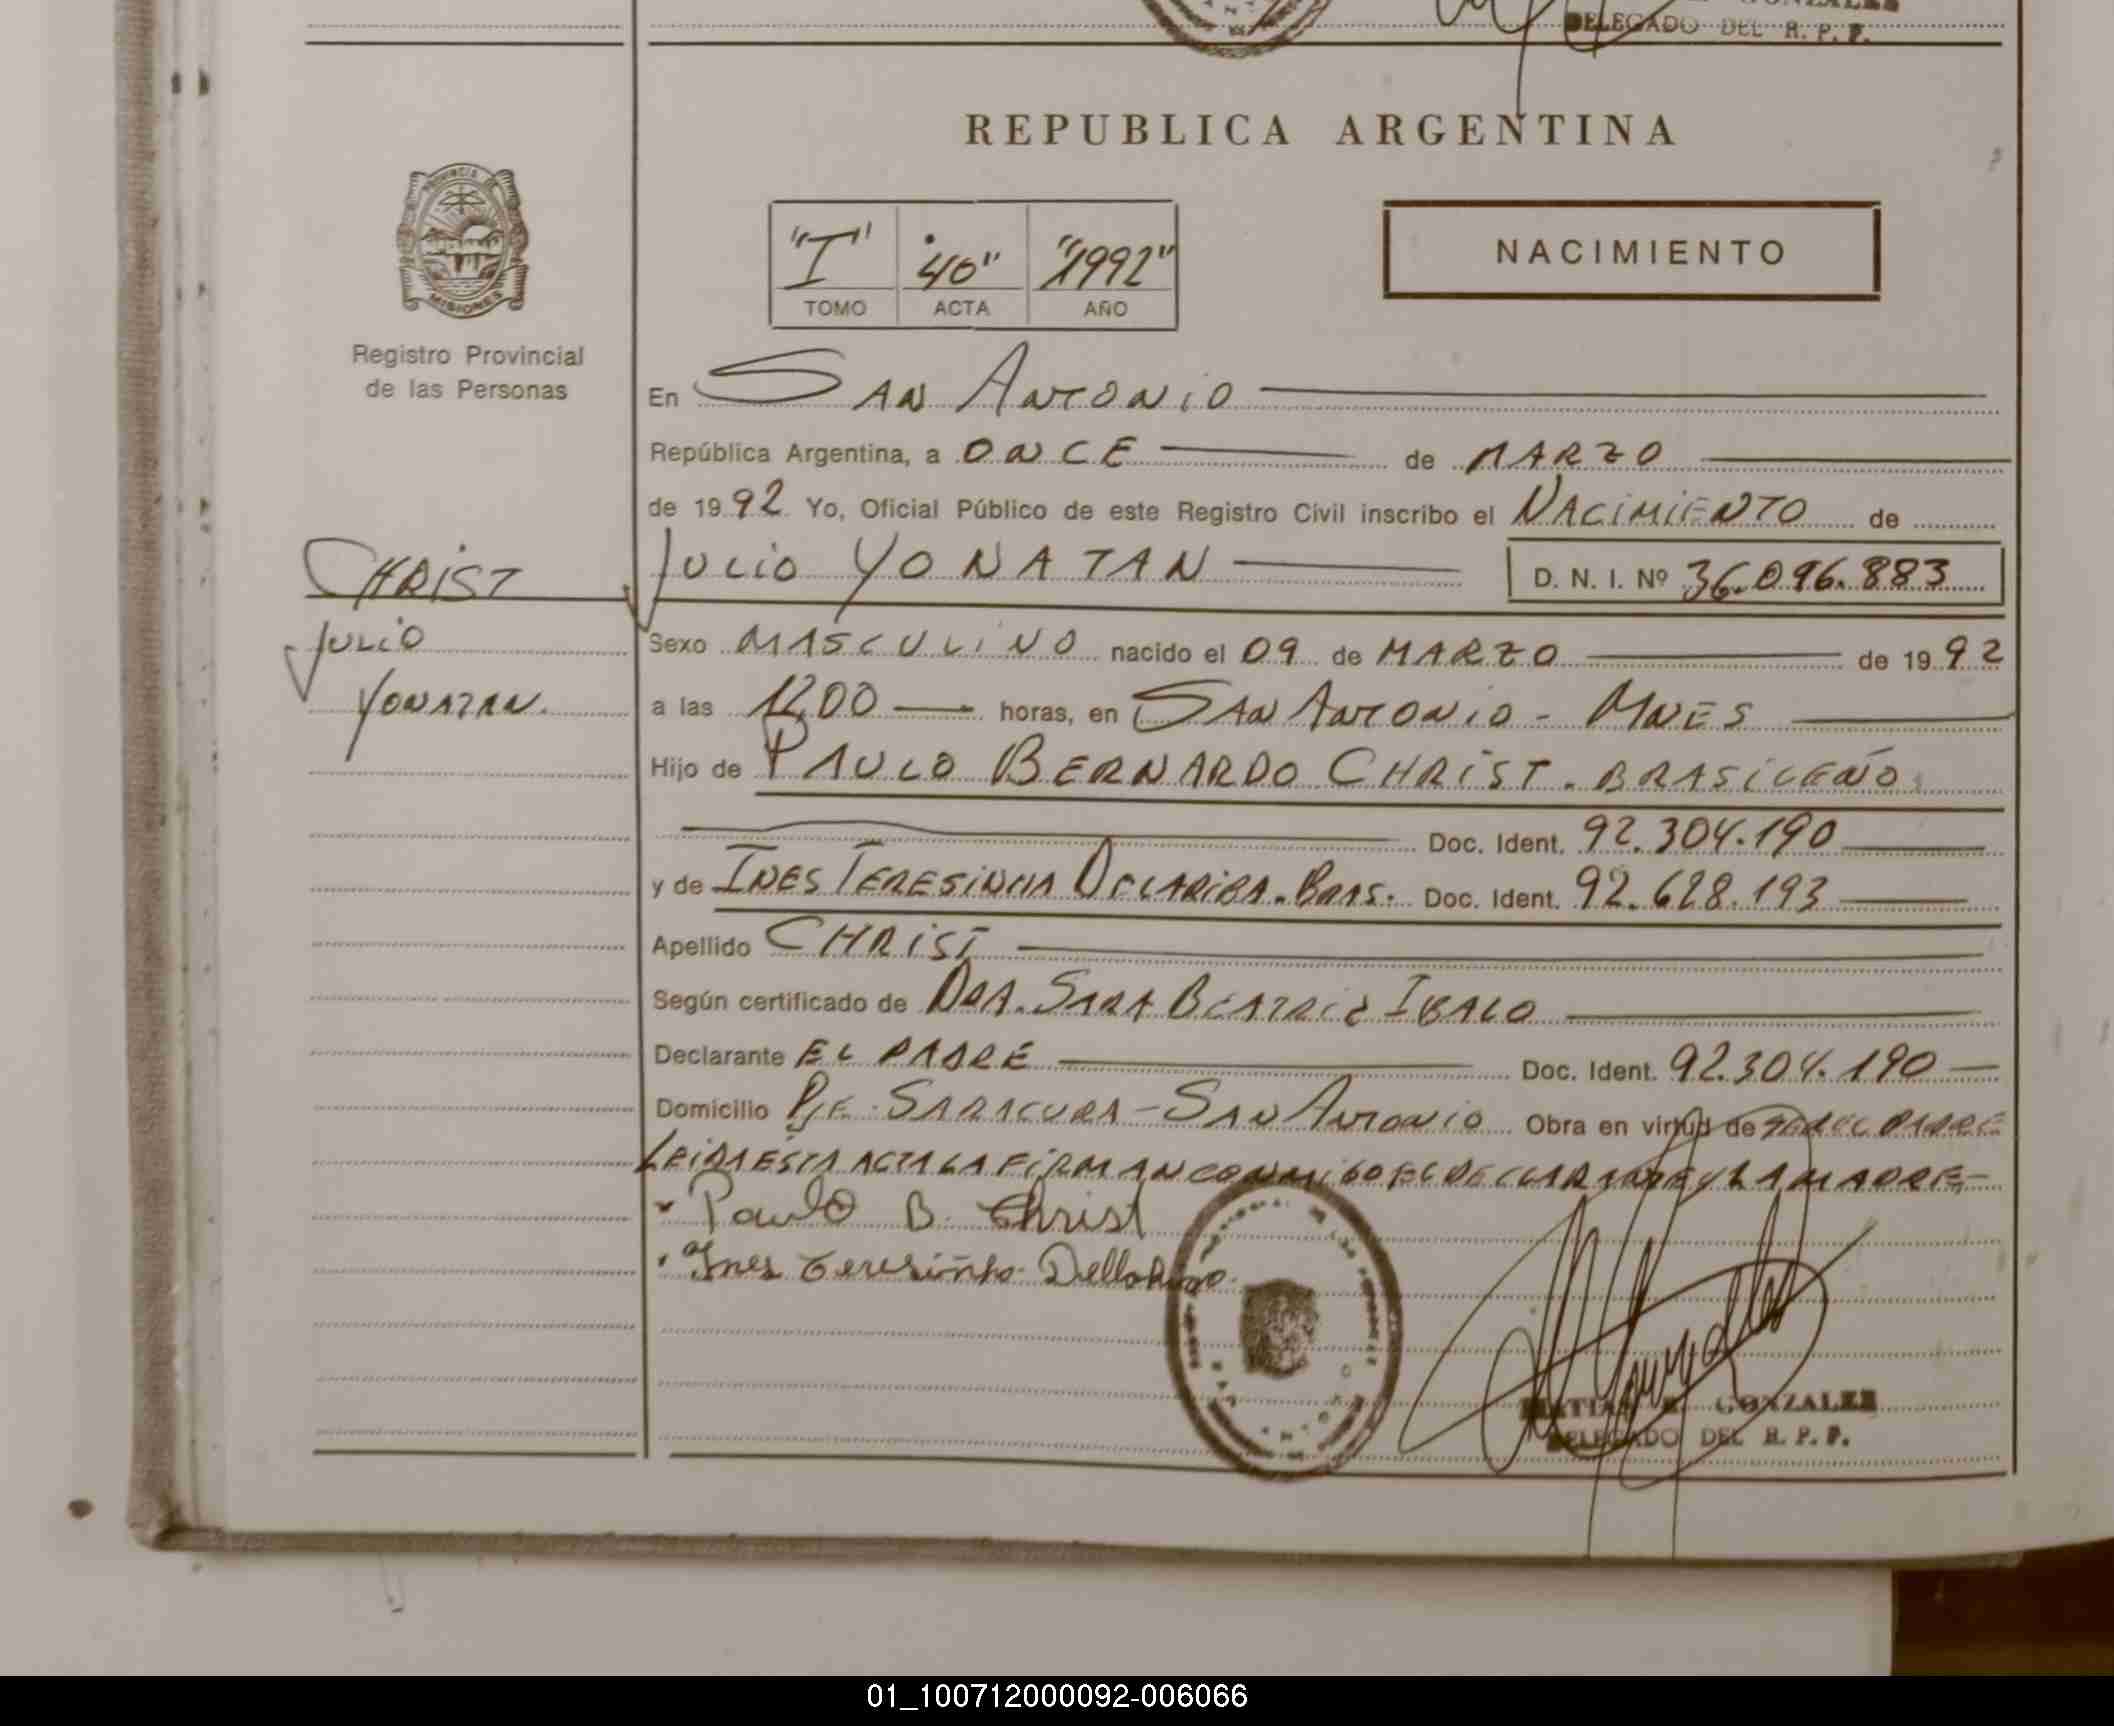 GONZALEZ
DELEGADO DEL R. P. P.
REPUBLICA ARGENTINA
PROVINCIA DE
MISIONES
Registro Provincial
de las Personas
"I" "40" "1992"
TOMO ACTA AÑO
NACIMIENTO
En SAN ANTONIO
República Argentina, a ONCE de MARZO
de 1992 Yo, Oficial Público de este Registro Civil inscribo el NACIMIENTO de
JULIO YONATAN D. N. I. Nº 36.096.883
CHRIST
JULIO
YONATAN.
Sexo MASCULINO nacido el 09 de MARZO de 1992
a las 12,00 horas, en SAN ANTONIO - MNES
Hijo de PAULO BERNARDO CHRIST. BRASILEÑO
Doc. Ident. 92.304.190
y de INES TERESINHA DELARIBA. BRAS. Doc. Ident. 92.628.193
Apellido CHRIST
Según certificado de DRA. SARA BEATRIZ IBALO
Declarante EL PADRE Doc. Ident. 92.304.190
Domicilio PJE. SARACURA - SAN ANTONIO Obra en virtud de SER EL PADRE
LEIDA ESTA ACTA LA FIRMAN CONMIGO EL DECLARANTE Y LA MADRE-
Paulo B. Christ
Ines Teresinha
MATIAS R. GONZALEZ
DELEGADO DEL R. P. P.
01_100712000092-006066